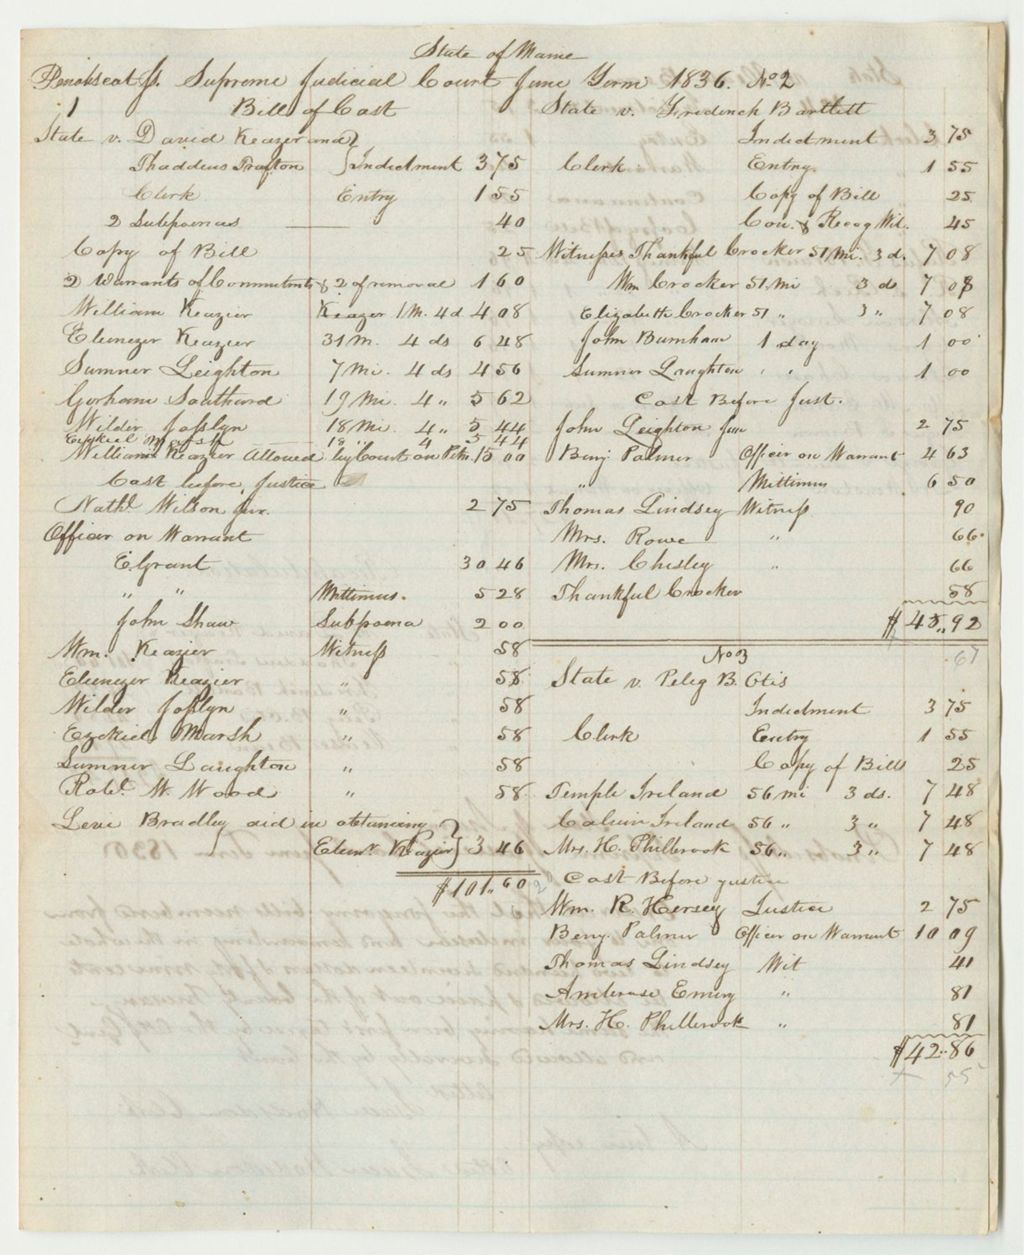 State of Maine
Penobscot ss. Supreme Judicial Court June Term 1836. No 2
1 Bill of Cost
State v. David Keazer and
Thaddeus Trafton } Indictment 3 75
Clerk Entry 1 55
2 Subpoenas 40
Copy of Bill 25
2 Warrants of Commitments & 2 of removal 1 60
William Keazier Keazer 1 M. 4 d 4 08
Ebenezer Keazier 31 M. 4 ds 6 48
Sumner Leighton 7 Mi. 4 ds 4 56
Gorham Southard 19 Mi. 4 " 5 62
Wilder Josslyn 18 Mi. 4 " 5 44
Ezekiel Marsh 18 " 4 5 44
William Keazier Allowed by Court on Petn. 15 00
Cost before Justice
Nathl. Wilson Jur. 2 75
Officer on Warrant
E. Grant 30 46
" " Mittimus. 5 28
John Shaw Subpoena 2 00
Wm. Keazier Witness 58
Ebenezer Keazier " 58
Wilder Josslyn " 58
Ezekiel Marsh " 58
Sumner Laughton " 58
Robt. W. Wood " 58
Levi Bradley aid in obtaining }
Ebenr. Keazier } 3 46
$101.60
State v. Fredrick Bartlett
Indictment 3 75
Clerk Entry. 1 55
Copy of Bill 25
Con. & Recog Wit. 45
Witnesses Thankful Crocker 51 Mi. 3 d. 7 08
Wm Crocker 51 Mi 3 ds 7 08
Elizabeth Crocker 51 " 3 " 7 08
John Burnham 1 day 1 00
Sumner Laughton " " 1 00
Cost Before Just.
John Leighton Jun 2 75
Benj Palmer Officer on Warrant 4 63
" Mittimus 6 50
Thomas Lindsey Witness 90
Mrs. Rowe " 66
Mrs. Chesley " 66
Thankful Crocker 58
$45.92
67
No 3
State v. Peleg B. Otis
Indictment 3 75
Clerk Entry 1 55
Copy of Bill 25
Temple Ireland 56 mi 3 ds. 7 48
Calvin Ireland 56 " 3 " 7 48
Mrs. H. Philbrook 56 " 3 " 7 48
Cost Before Justice
Wm. R. Hersey Justice 2 75
Benj. Palmer Officer on Warrant 10 09
Thomas Lindsey Wit 41
Ambrose Emery " 81
Mrs. H. Philbrook " 81
$42.86
55